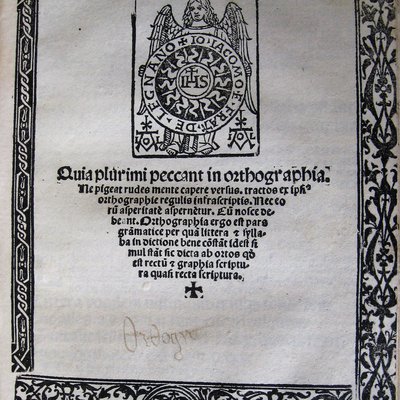 ✠ IO. IACOMO. E. FRAT. DE. LEGNANO
IHS
Quia plurimi peccant in orthographia.
Ne pigeat rudes mente capere versus. tractos ex ipſiꝰ
orthographie regulis infraſcriptis. Nec eo
rū aſperitatē aſpernētur. Cū noſce de
beant. Orthographia ergo eſt pars
grāmatice per quā littera ⁊ ſylla
ba in dictione bene cōſtāt idest ſi
mul ſtāt ſic dicta ab ortos qḋ
eſt rectū ⁊ graphia ſcriptu
ra quaſi recta ſcriptura.
✠